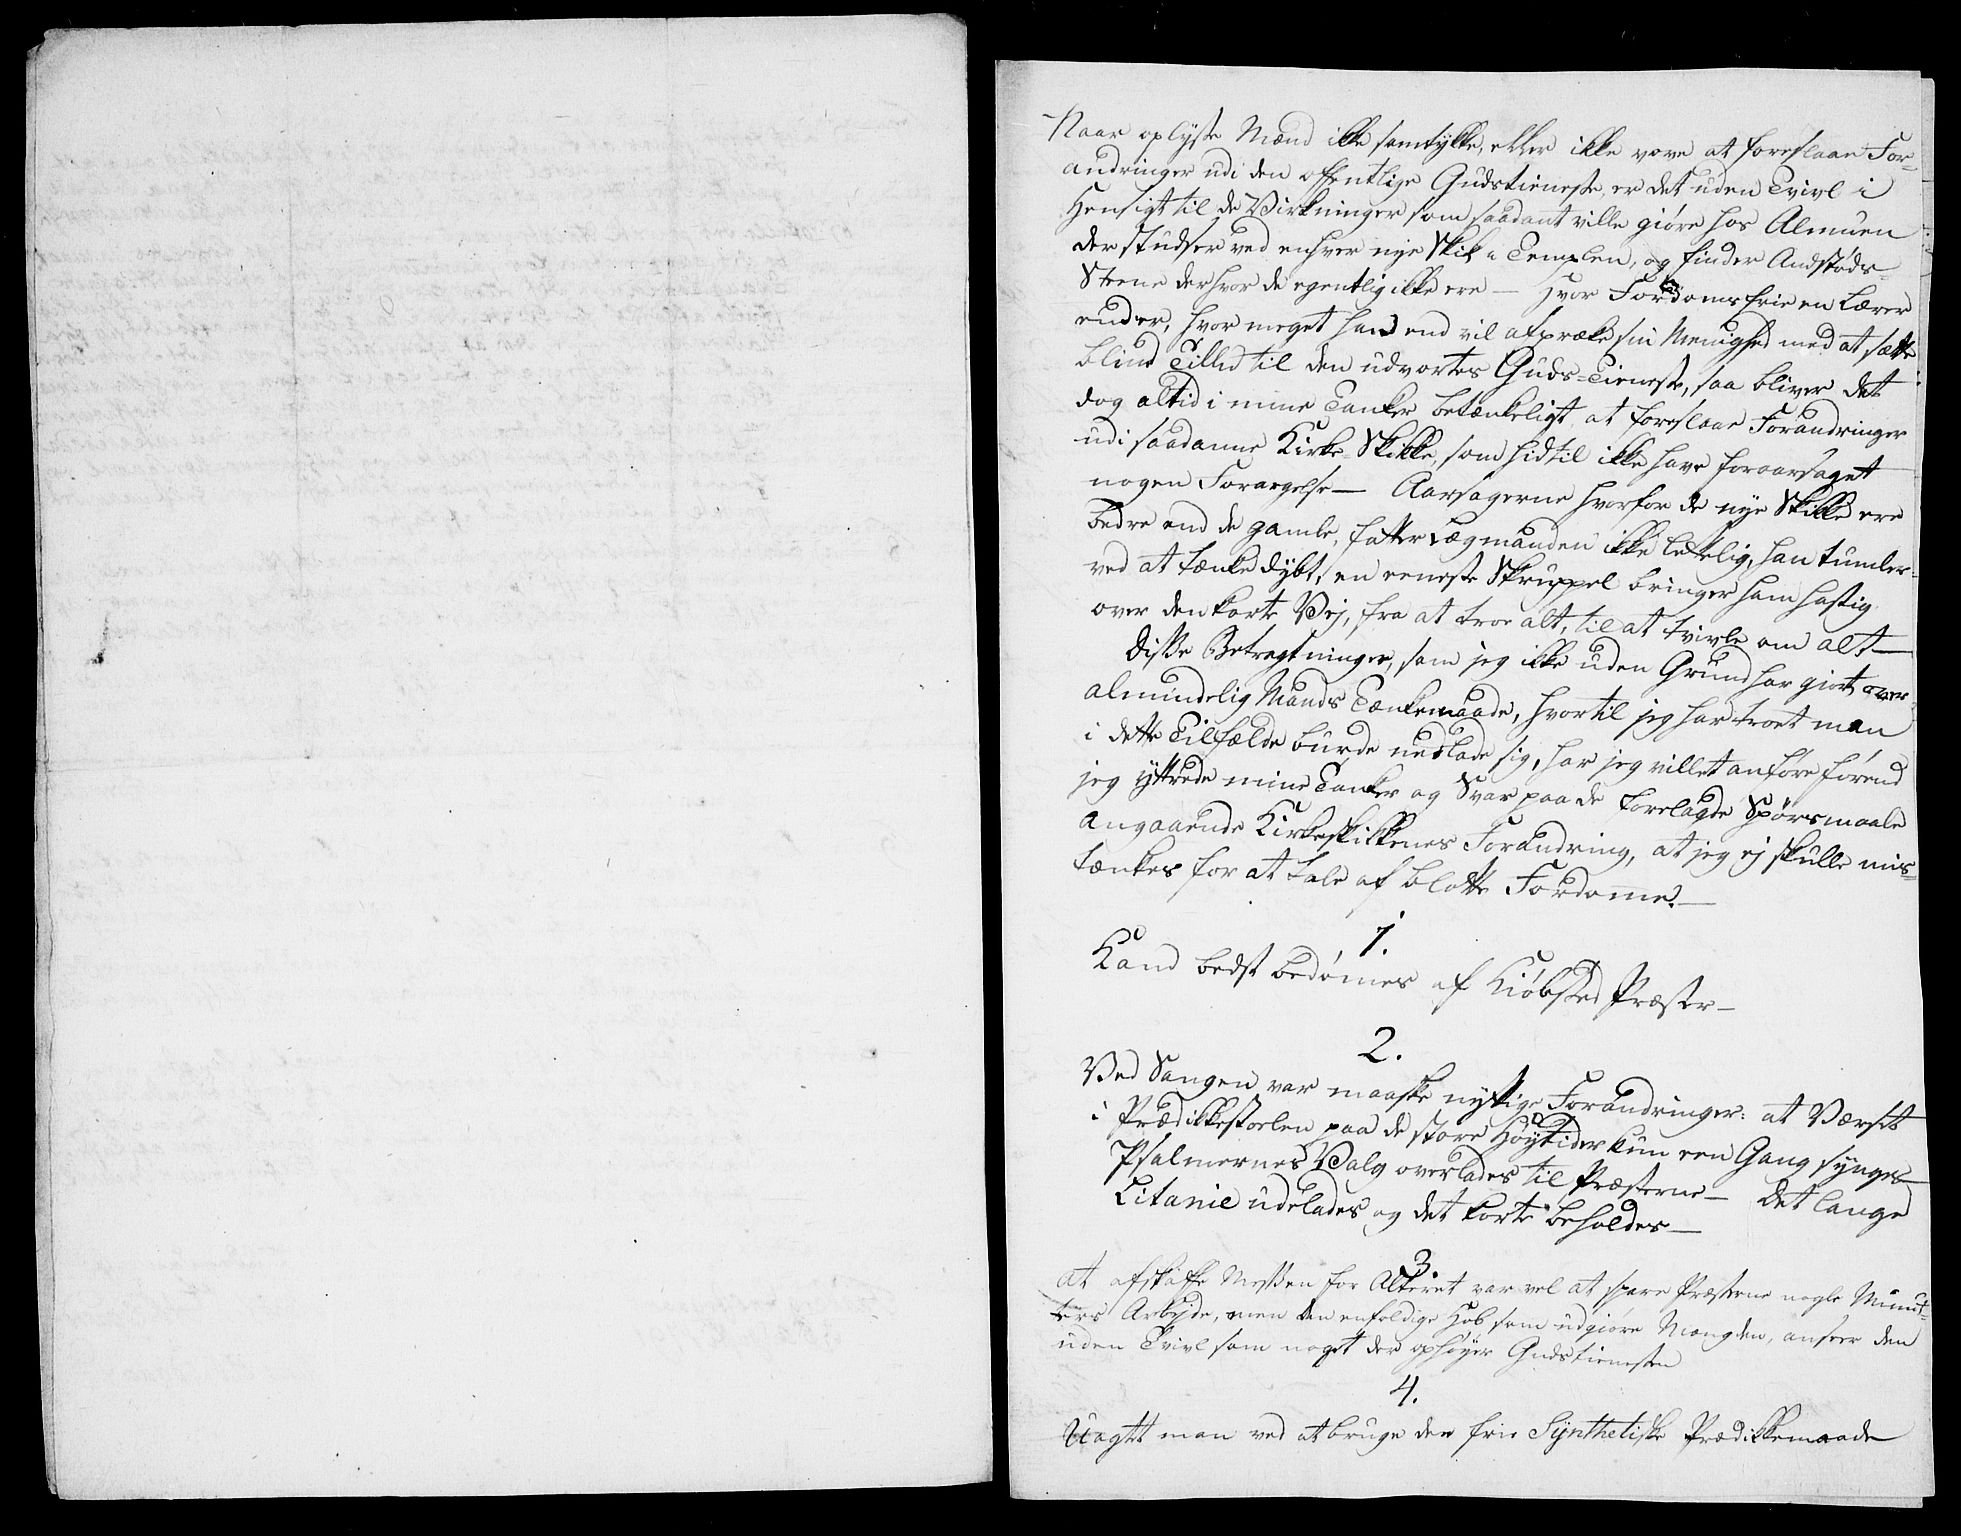 Naar oplyste Mænd ikke samtykke, eller ikke vove at foreslaae For-
andringer udi den offentlige Gudstieneste, er det uden Tvivl i
Hensigt til de Virkninger som saadant ville giøre hos Almuen
der studser ved enhver nye Skik i Templen, og finder Andstøds-
Steene der hvor de egentlig ikke ere — Hvor Fordoms frie en Lærer
end er, hvor meget han end vil afpræke sin Menighed med at sætte
blind Tillid til den udvortes Guds-Tieneste, saa bliver det
dog altid i mine Tanker betænkeligt at foreslaae Forandringer
udi saadanne Kirke-Skikke, som hidtil ikke have foraarsaget
nogen Forargelse — Aarsagerne hvorfor de nye Skikke ere
bedre end de gamle, fatter Lægmanden ikke lettelig, han tumler
ved at tænke dybt, en eeneste Skruppel bringer ham hastig
over den korte Vej, fra at troe alt, til at tvivle om alt —
Disse Betragtninger, som jeg ikke uden Grund har giort over
almindelig Mands Tænkemaade, hvortil jeg har troet man
i dette Tilfælde burde nedlade sig, har jeg villet anføre førend
jeg yttrede mine Tanker og Svar paa de forelagde Spørsmaale
angaaende Kirkeskikkenes Forandring, at jeg ej skulle mis-
tænkes for at tale af blotte Fordomme. —
1.
Kand bedst bedømmes af Kiøbsted Præster —
2.
Ved Sangen var maaske nyttige Forandringer: at Værset
i Prædikkestoelen paa de store Høytider kun een Gang synges —
Psalmernes Valg overlades til Præsterne — Det lange
Litanie udelades og det korte beholdes —
3.
At afskaffe Messen for Alteret var vel at spare Præsterne nogle Minut-
ters Arbeyde, men den enfoldige Hob som udgiøre Mængden, anseer den
uden Tvivl som noget der ophøyer Gudstienesten
4.
Uagtet man ved at bruge den frie Synthetiske Prædikkemaade